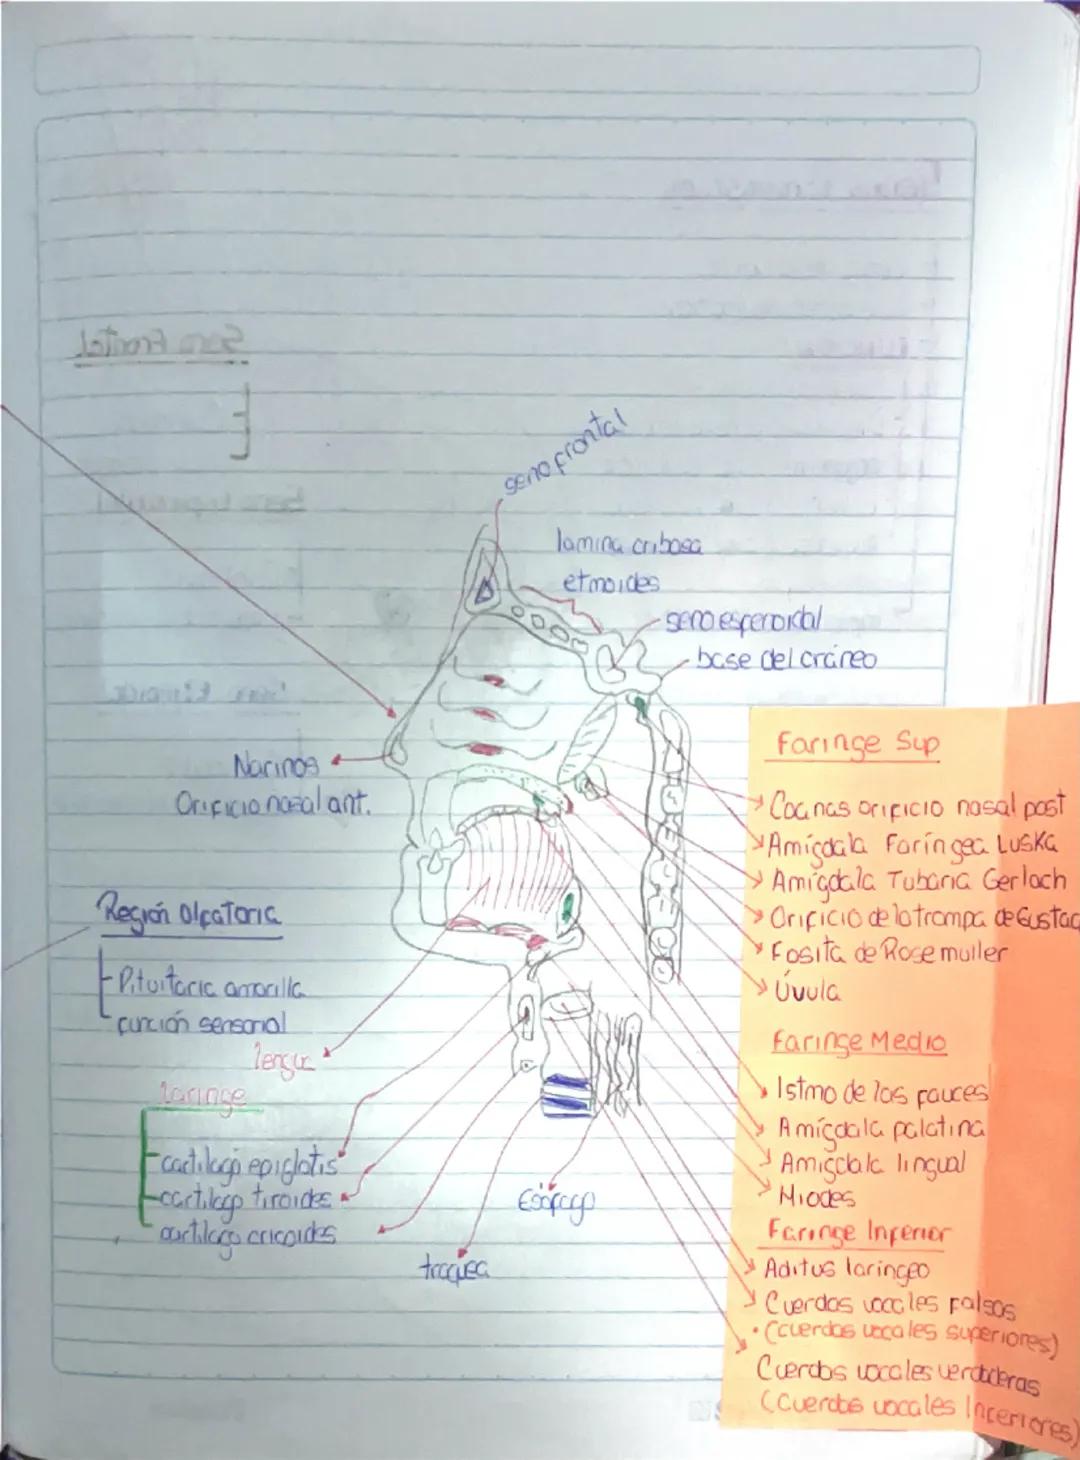 seno frontal
lamina cribosa
etmoides
seno esfenoidal
base del cráneo
Narinas
Orificio nasal ant.
Región Olfatoria
Pituitaria amarilla
función sensorial
lengua
laringe
cartilago epiglotis
cartilago tiroides
cartilago cricoides
Esófago
traquea
Faringe Sup
Coanas orificio nasal post
Amígdala Faríngea Luska
Amígdala Tubaria Gerlach
Orificio de la trompa de Eustaq
Fosita de Rosemuller
Úvula
Faringe Medio
Istmo de las fauces
Amígdala palatina
Amígdala lingual
Faringe Inferior
Aditus laringeo
Cuerdas vocales falsas
(cuerdas vocales superiores)
Cuerdas vocales verdaderas
(Cuerdas vocales Inferiores)